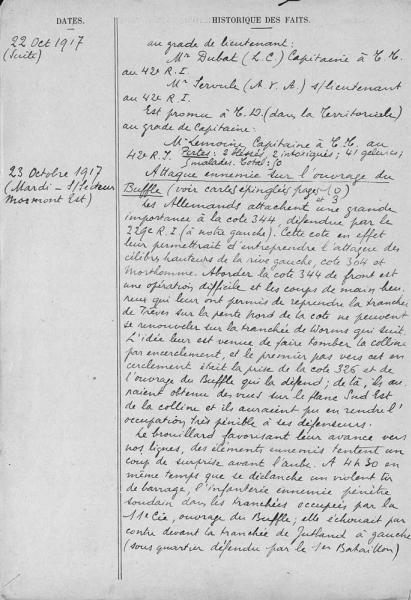 DATES.
HISTORIQUE DES FAITS.
22 Oct 1917
(Suite)
au grade de lieutenant:
Mr Dubat (L.C.) Capitaine à T.T.
au 42e R.I.
Mr Servule (A.V.A.) s/lieutenant
au 42e R.I.
Est promu à T.D. (dans la Territoriale)
au grade de Capitaine:
Mr Lemoine Capitaine à T.T. au
42e R.I. Pertes: 2 blessés, 2 intoxiqués; 41 galeux;
5 malades. Total: 50
23 Octobre 1917
(Mardi - S/Secteur
Mormont Est)
Attaque ennemie sur l'ouvrage du
Buffle (voir cartes épinglées pages et 3)
Les Allemands attachent une grande
importance à la cote 344, défendue par le
229e R.I. (à notre gauche). Cette cote en effet
leur permettrait d'entreprendre l'attaque des
célèbres hauteurs de la rive gauche, cote 304 et
Morthomme. Aborder la cote 344 de front est
une opération difficile et les coups de main heu-
reux qui leur ont permis de reprendre la tranchée
de Trèves sur la pente Nord de la cote ne peuvent
se renouveler sur la tranchée de Worms qui suit.
L'idée leur est venue de faire tomber la colline
par encerclement, et le premier pas vers cet en-
cerclement était la prise de la cote 326 et de
l'ouvrage du Buffle qui la défend; de là, ils au-
raient obtenu des vues sur le flanc Sud Est
de la colline et ils auraient pu en rendre l'
occupation très pénible à ses défenseurs.
Le brouillard favorisant leur avance vers
nos lignes, des éléments ennemis tentent un
coup de surprise avant l'aube. A 4h30 en
même temps que se déclanche un violent tir
de barrage, l'infanterie ennemie pénètre
soudain dans les tranchées occupées par la
11e Cie, ouvrage du Buffle; elle s'échouait par
contre devant la tranchée de Jutland à gauche
(sous quartier défendu par le 1er Bataillon)